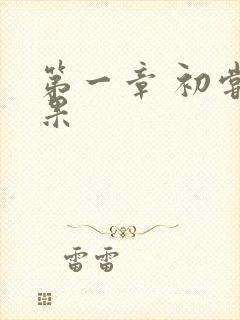 第一章 初尝
果
雷雷